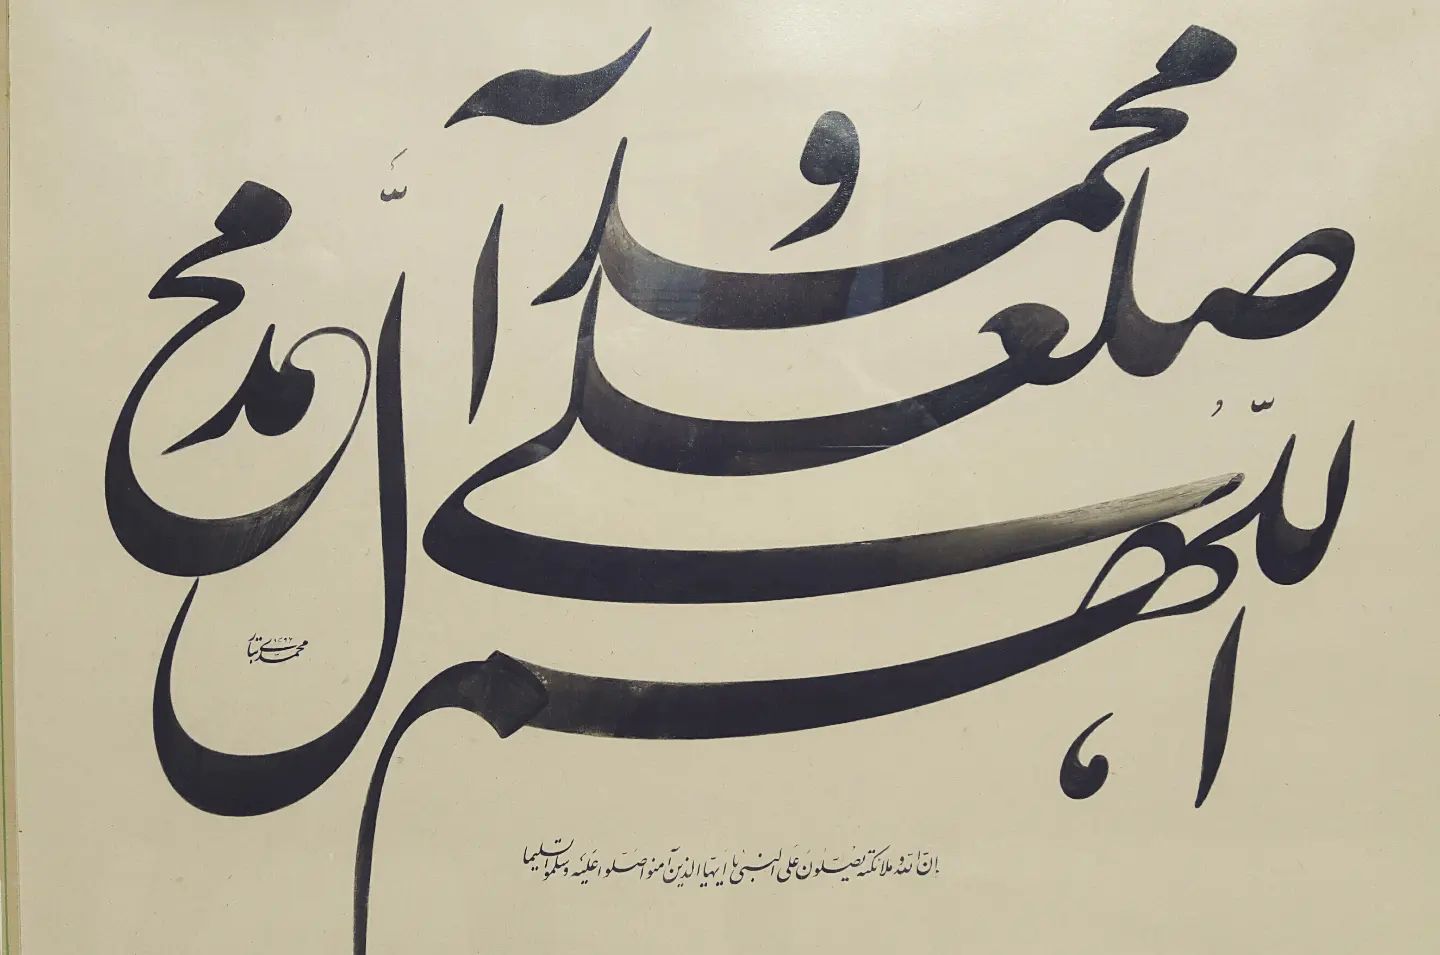 اللّهم صل علی محمد و آل محمد
إنّ اللّه و ملائكته یصلّون علی النبی یا أیهّا الذین آمنوا صلّوا علیه و سلّموا تسلیما